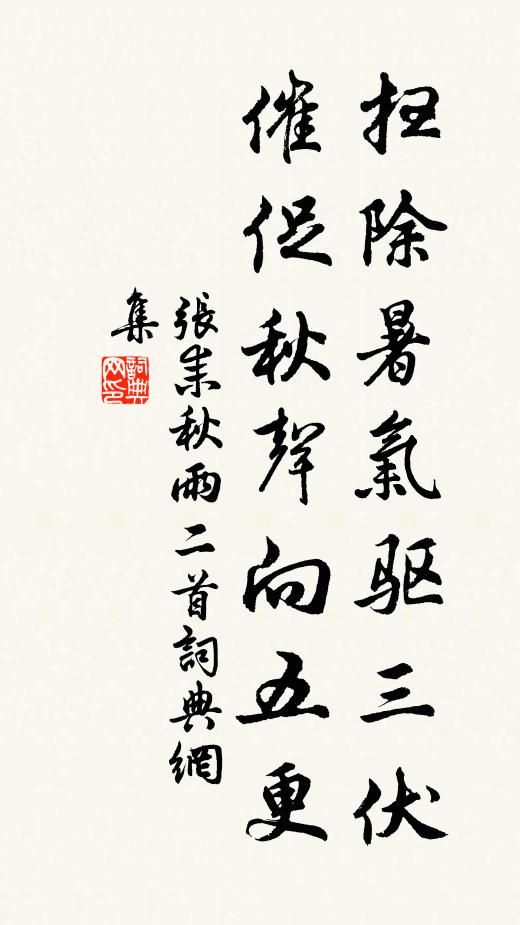 扫除暑氣驱三伏
催促秋聲向五更
張耒秋雨二首詞典網
集
詞典
网印